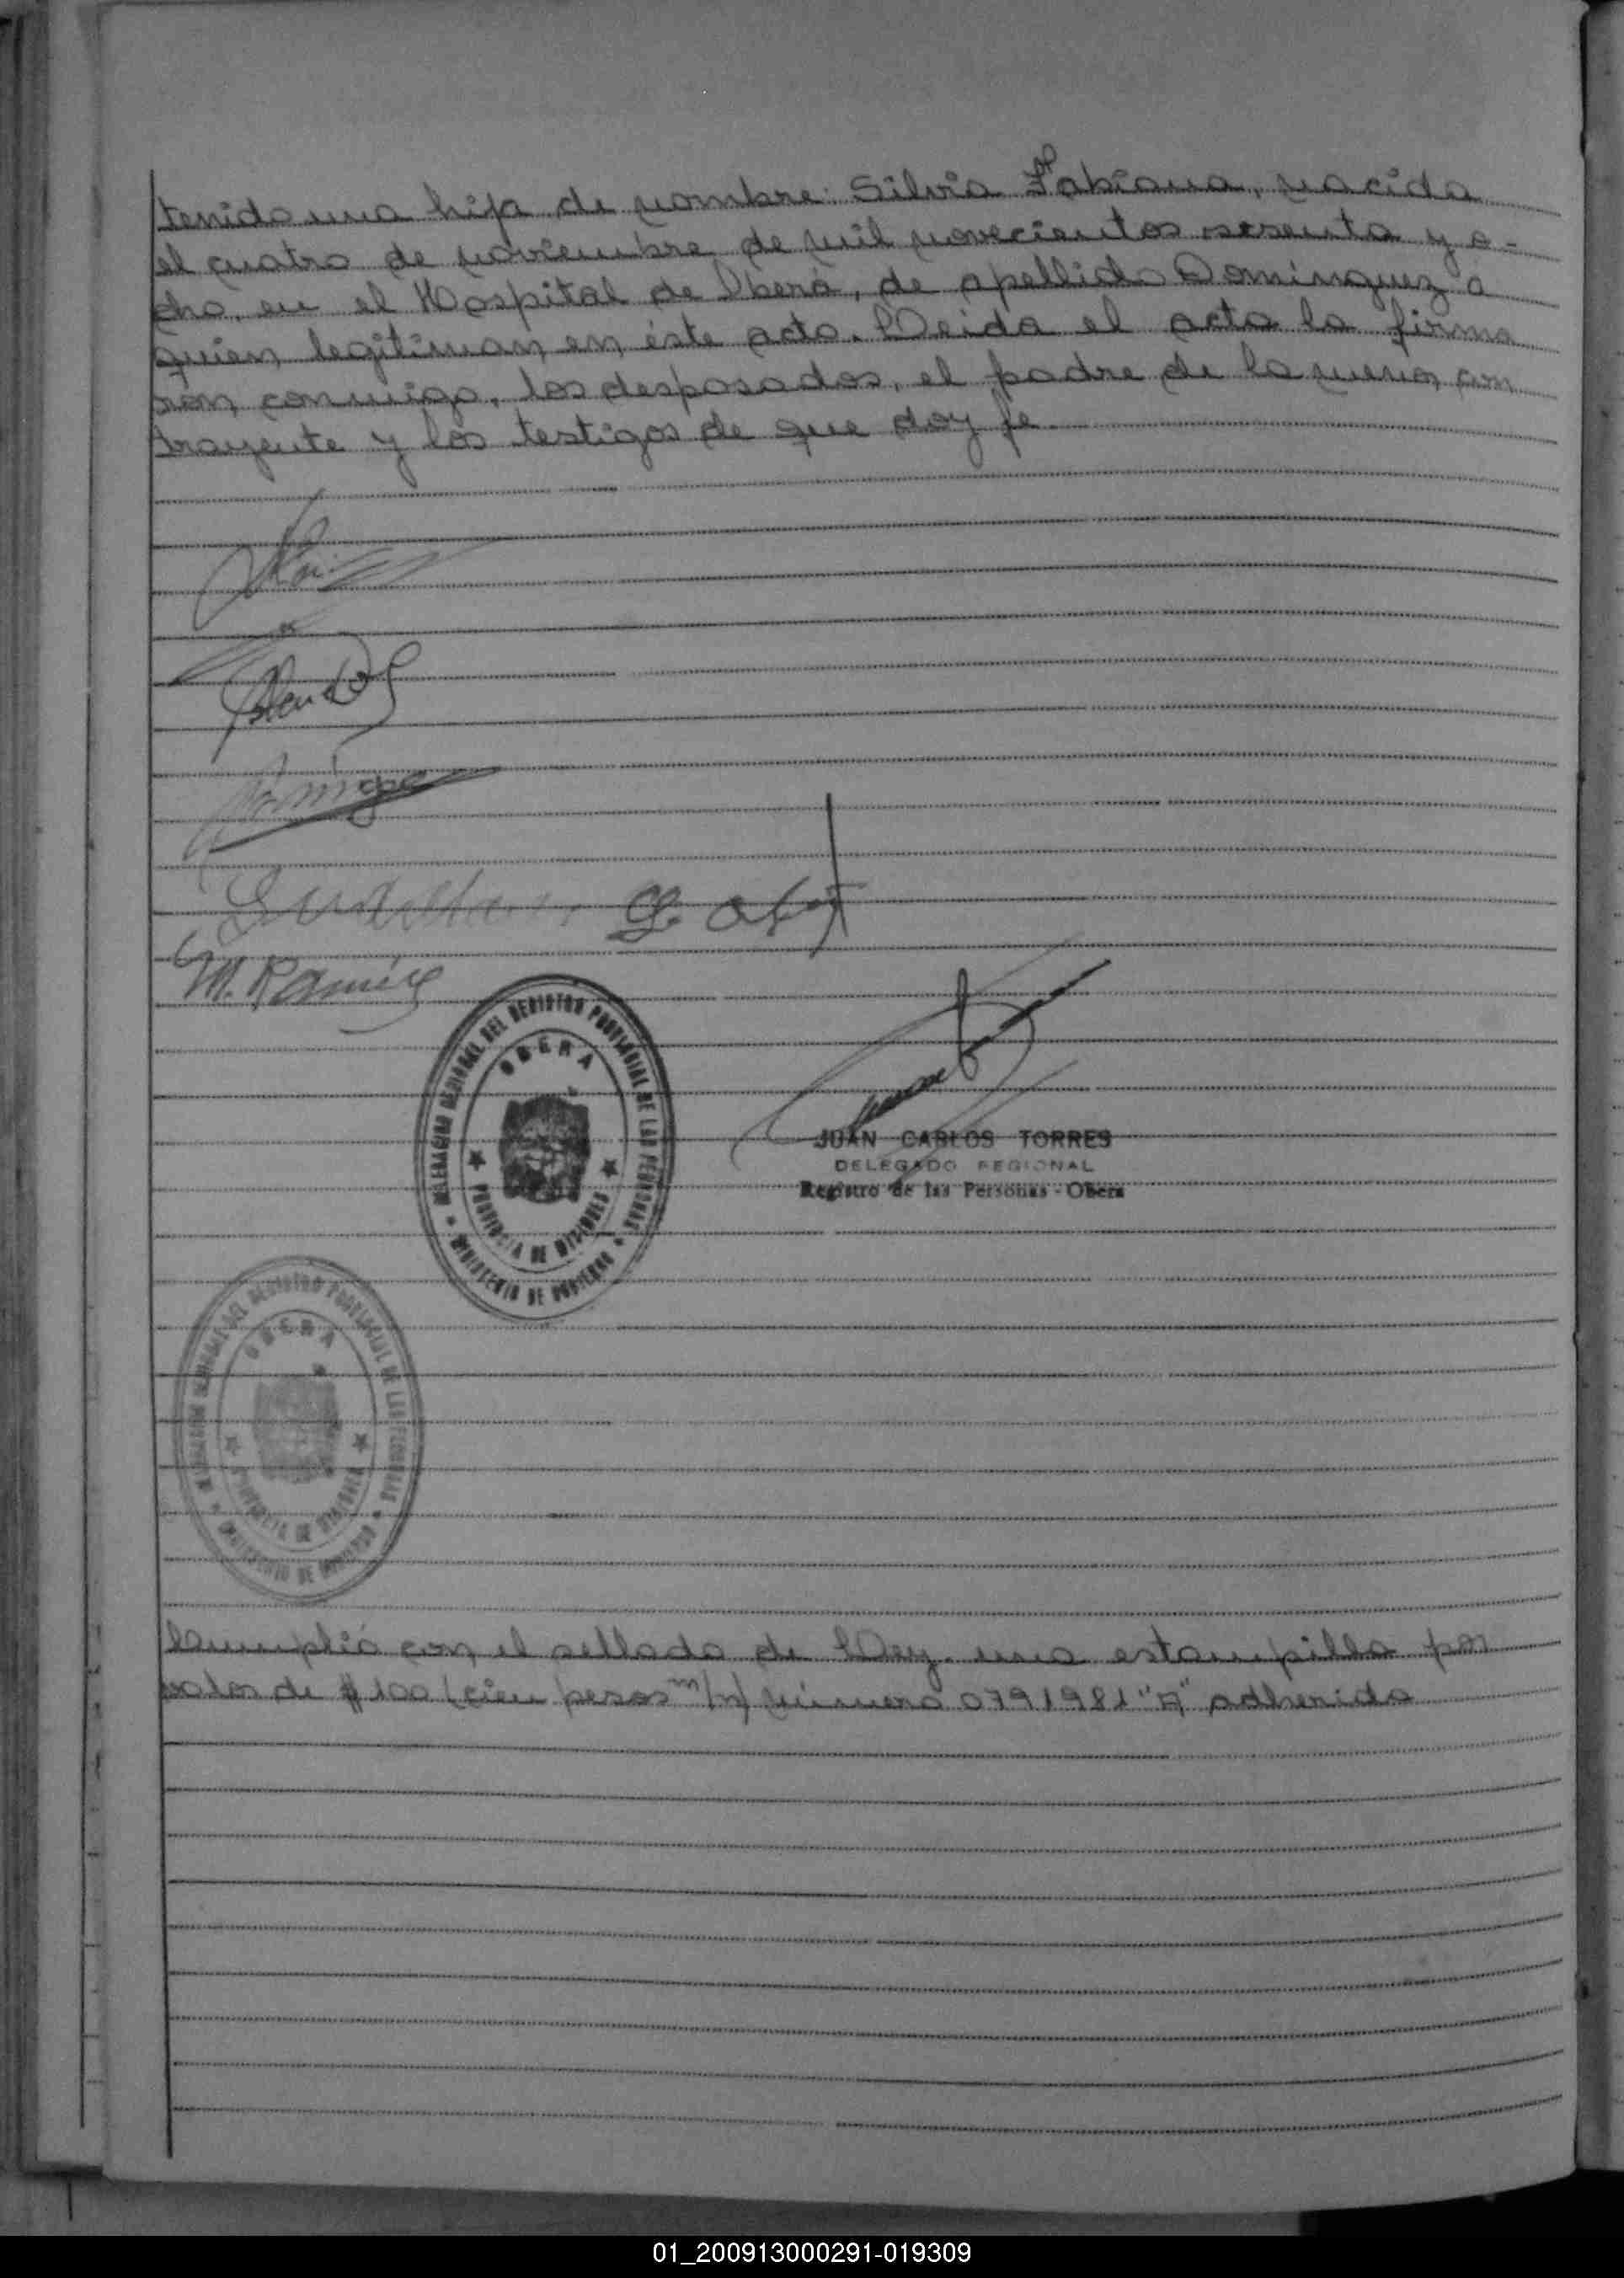 tenido una hija de nombre: Silvia Fabiana, nacida
el cuatro de noviembre de mil novecientos sesenta y o-
cho, en el Hospital de Oberá, de apellido Domínguez a
quien legitiman en éste acto. Leida el acta la firma
ron conmigo, los desposados, el padre de la menor con
trayente y los testigos de que doy fe.
M. Ramírez
DELEGACION REGIONAL DEL REGISTRO PROVINCIAL DE LAS PERSONAS
OBERA
PROVINCIA DE MISIONES
MINISTERIO DE GOBIERNO
JUAN CARLOS TORRES
DELEGADO REGIONAL
Registro de las Personas - Obera
DEL REGISTRO PROVINCIAL DE LAS PERSONAS
OBERA
PROVINCIA DE MISIONES
MINISTERIO DE GOBIERNO
Cumplió con el sellado de Ley. una estampilla por
valor de $ 100 (cien pesos m/n) número 0791981 "A" adherida
01_200913000291-019309